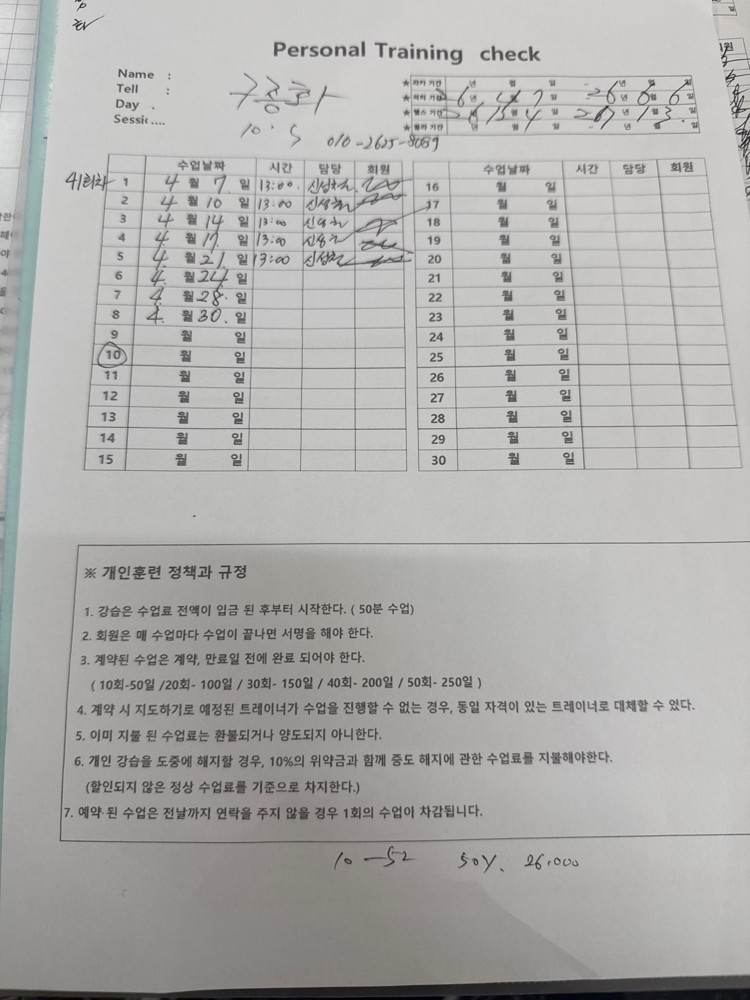 Personal Training check
Name :
Tell :
Day .
Sessi....
구종회
10. 5 010-2625-8059
★ 락카 기간 년 월 일 ~ 년 월 일
★ 락카 기간 26년 4월 7일 ~ 26년 6월 6일
★ 헬스 기간 년 월 4일 ~ 년 1월 3.일
★ 필라 기간 년 월 일 ~ 년 월 일
수업날짜 시간 담당 회원 수업날짜 시간 담당 회원
41회차 1 4월 7일 13:00. 16 월 일
2 4월 10일 13:00 17 월 일
3 4월 14일 13:00 18 월 일
4 4월 17일 13:00 19 월 일
5 4월 21일 13:00 20 월 일
6 4월 24일 21 월 일
7 4월 28일 22 월 일
8 4월 30일 23 월 일
9 월 일 24 월 일
10 월 일 25 월 일
11 월 일 26 월 일
12 월 일 27 월 일
13 월 일 28 월 일
14 월 일 29 월 일
15 월 일 30 월 일
※ 개인훈련 정책과 규정
1. 강습은 수업료 전액이 입금 된 후부터 시작한다. ( 50분 수업)
2. 회원은 매 수업마다 수업이 끝나면 서명을 해야 한다.
3. 계약된 수업은 계약, 만료일 전에 완료 되어야 한다.
( 10회-50일 /20회- 100일 / 30회- 150일 / 40회- 200일 / 50회- 250일 )
4. 계약 시 지도하기로 예정된 트레이너가 수업을 진행할 수 없는 경우, 동일 자격이 있는 트레이너로 대체할 수 있다.
5. 이미 지불 된 수업료는 환불되거나 양도되지 아니한다.
6. 개인 강습을 도중에 해지할 경우, 10%의 위약금과 함께 중도 해지에 관한 수업료를 지불해야한다.
(할인되지 않은 정상 수업료를 기준으로 차지한다.)
7. 예약 된 수업은 전날까지 연락을 주지 않을 경우 1회의 수업이 차감됩니다.
10 -52 50%. 26.000